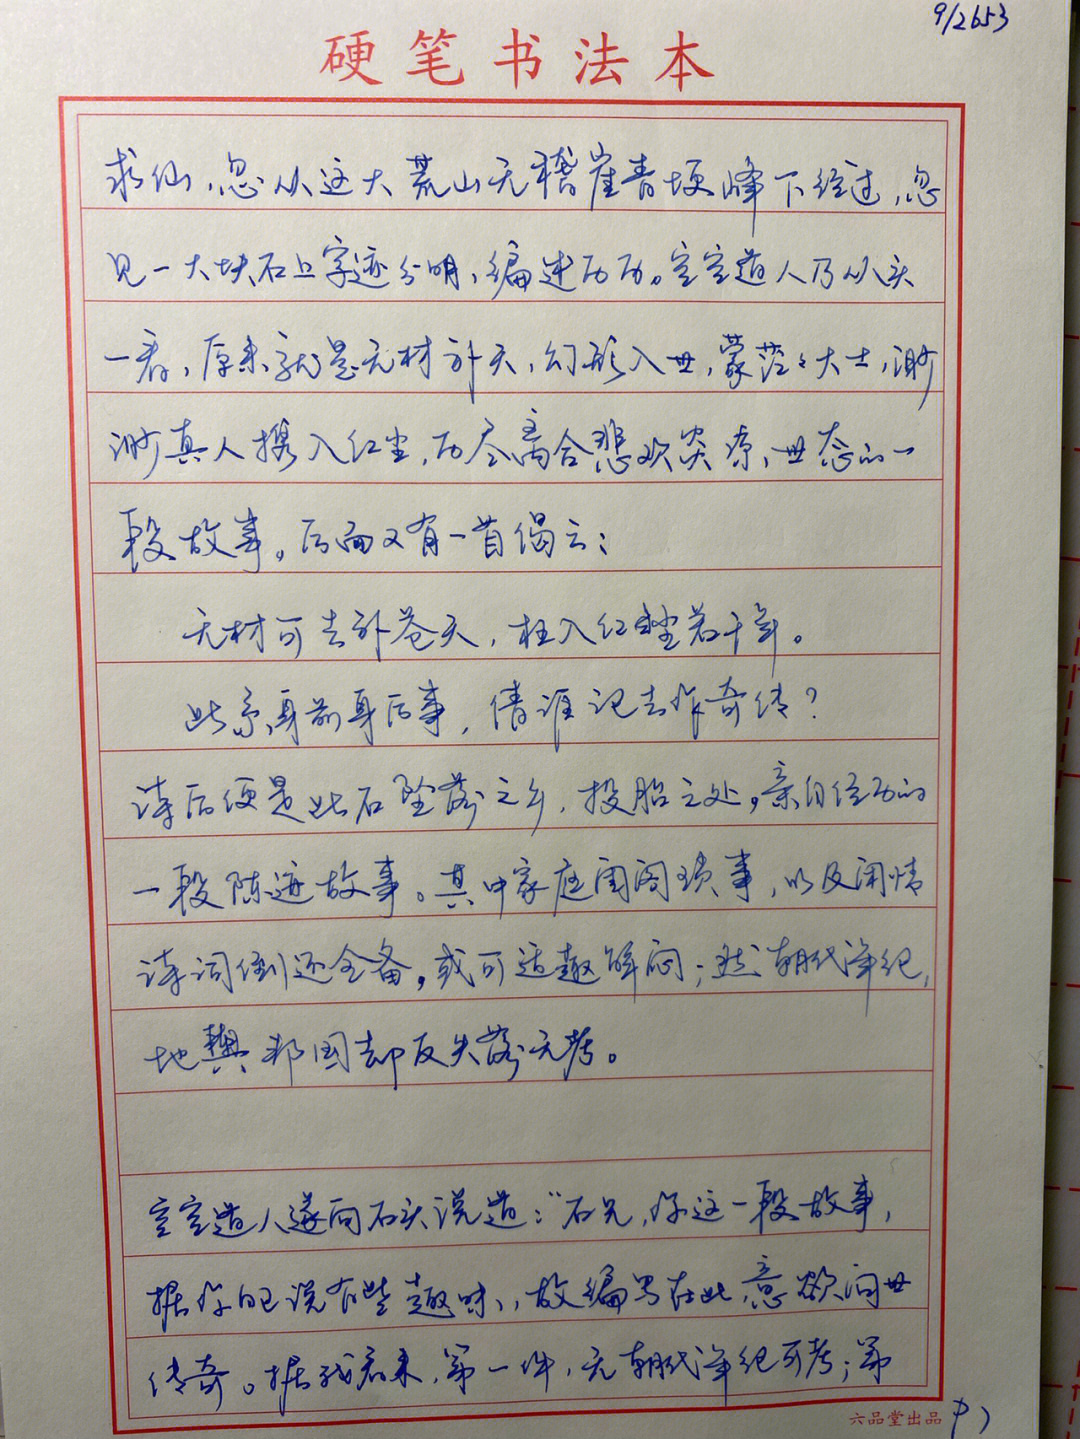 9/2653
硬笔书法本
求仙，忽从这大荒山无稽崖青埂峰下经过，忽
见一大块石上字迹分明，编述历历。空空道人乃从头
一看，原来就是无材补天，幻形入世，蒙茫々大士，渺
渺真人携入红尘，历尽离合悲欢炎凉、世态的一
段故事。后面又有一首偈云：
无材可去补苍天，枉入红尘若干年。
此系身前身后事，倩谁记去作奇传？
诗后便是此石坠落之乡，投胎之处，亲自经历的
一段陈迹故事。其中家庭闺阁琐事，以及闲情
诗词倒还全备，或可适趣解闷；然朝代年纪，
地舆邦国却反失落无考。
空空道人遂向石头说道：“石兄，你这一段故事，
据你自己说有些趣味，故编写在此，意欲问世
传奇。据我看来，第一件，无朝代年纪可考；第
六品堂出品